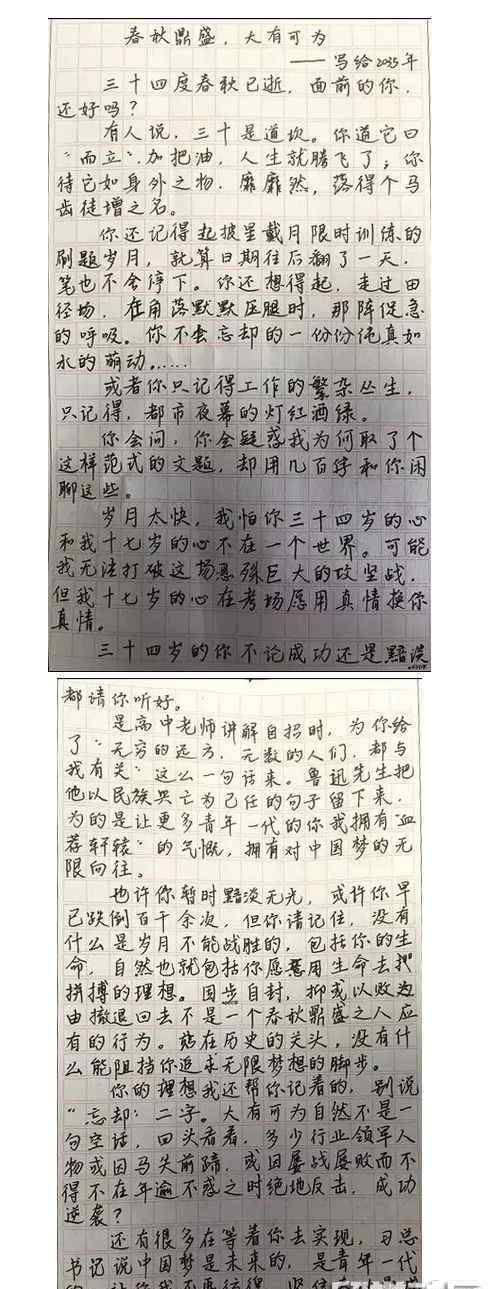 春秋鼎盛，大有可为
——写给2035年
三十四度春秋已逝，面前的你，
还好吗？
有人说，三十是道坎。你道它曰
“而立”，加把油，人生就腾飞了；你
待它如身外之物，靡靡然，落得个马
齿徒增之名。
你还记得起披星戴月限时训练的
刷题岁月，就算日期往后翻了一天，
笔也不会停下。你还想得起，走过田
径场，在角落默默压腿时，那阵促急
的呼吸。你不会忘却的一份份纯真如
水的萌动……
或者你只记得工作的繁杂丛生，
只记得，都市夜幕的灯红酒绿。
你会问，你会疑惑我为何取了个
这样范式的文题，却用几百字和你闲
聊这些。
岁月太快，我怕你三十四岁的心
和我十七岁的心不在一个世界。可能
我无法打破这场悬殊巨大的攻坚战，
但我十七岁的心在考场愿用真情换你
真情。
三十四岁的你不论成功还是黯淡
都请你听好。
是高中老师讲解自招时，为你给
了“无穷的远方，无数的人们，都与
我有关”这么一句话来。鲁迅先生把
他以民族兴亡为己任的句子留下来，
为的是让更多青年一代的你我拥有“血
荐轩辕”的气慨，拥有对中国梦的无
限向往。
也许你暂时黯淡无光，或许你早
已跌倒百千余次，但你请记住，没有
什么是岁月不能战胜的，包括你的生
命，自然也就包括你愿意用生命去
拼搏的理想。固步自封，抑或以败为
由撤退回去不是一个春秋鼎盛之人应
有的行为。站在历史的关头，没有什
么能阻挡你追求无限梦想的脚步。
你的理想我还帮你记着的，别说
“忘却”二字。大有可为自然不是一
句空话，回头看看，多少行业领军人
物或因马失前蹄，或因屡战屡败而不
得不在年逾不惑之时绝地反击，成功
逆袭？
还有很多在等着你去实现，习总
书记说中国梦是未来的，是青年一代